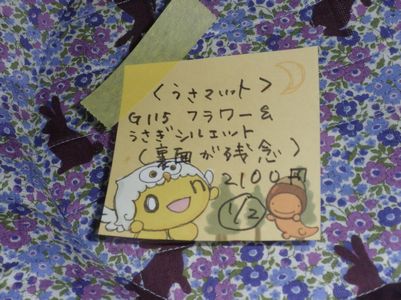 〈うさマット〉
G115 フラワー&
うさぎシルエット
(裏面が残念)
2100円
1/2